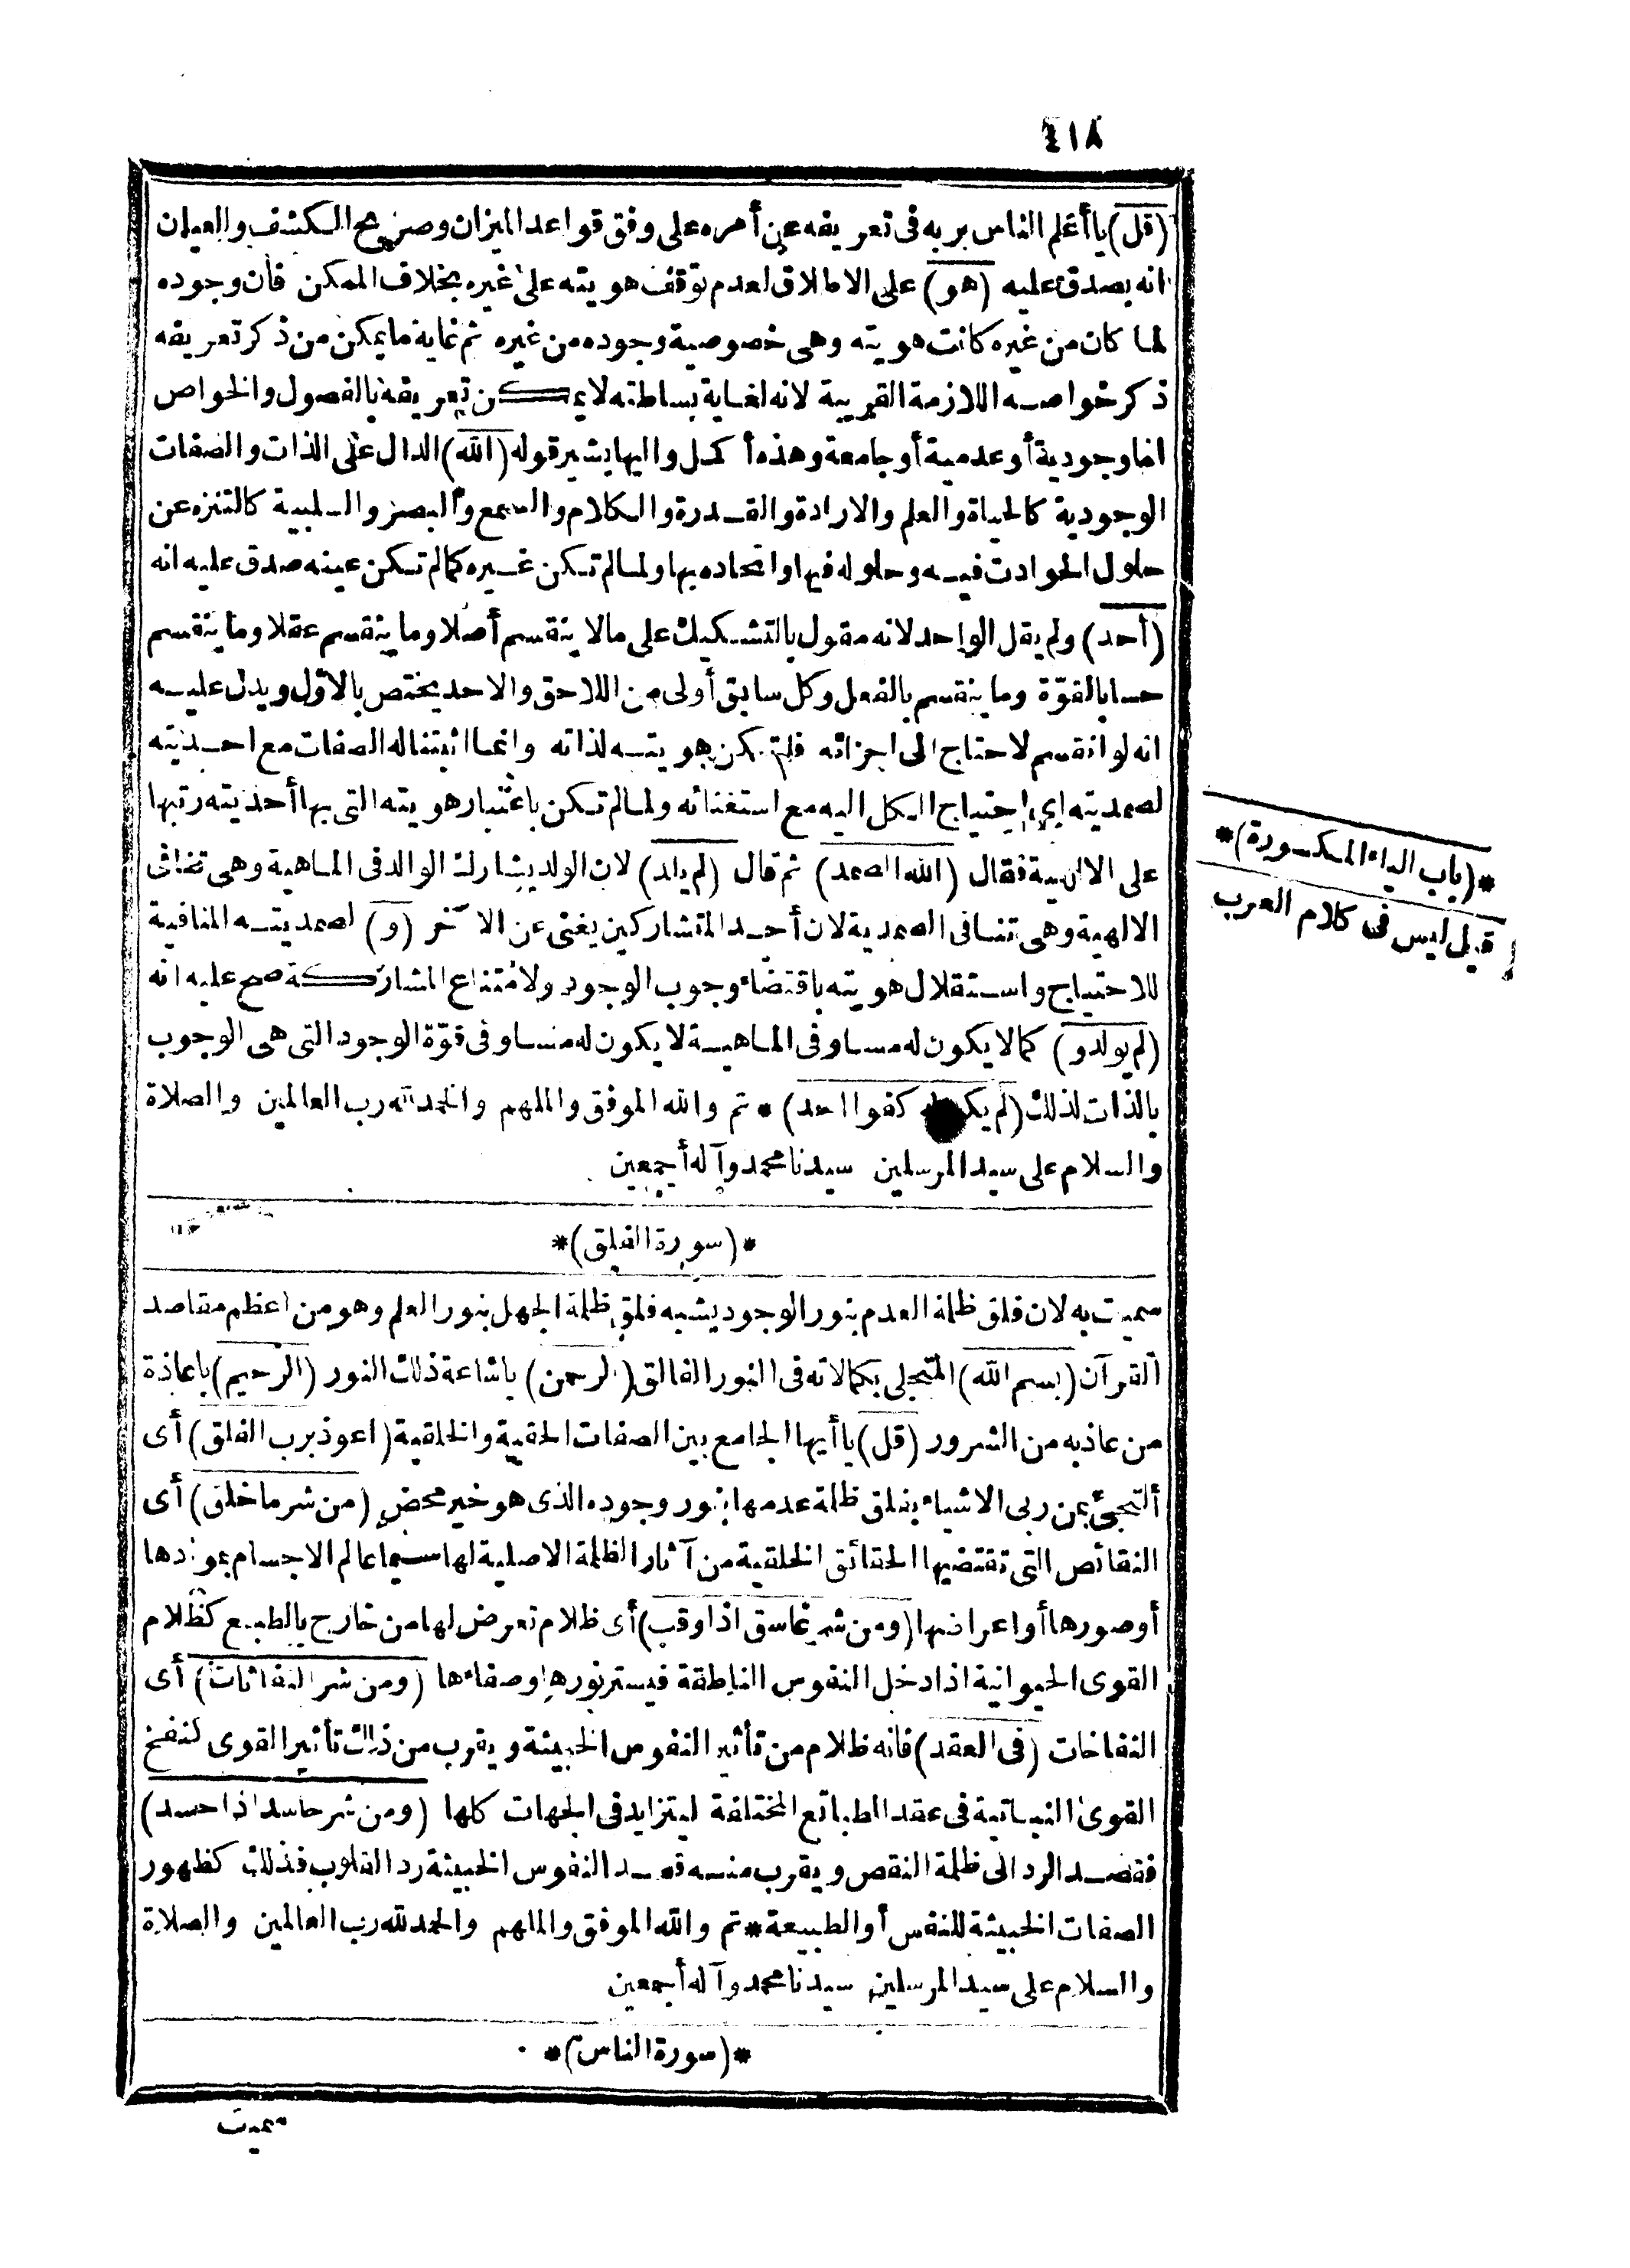 ٤١٨
(قل) يا أعلم الناس بربه فى تعريفه عن أمره على وفق قواعد الميزان وصريح الكشف والعيان
انه يصدق عليه (هو) على الاطلاق لعدم توقف هويته على غيره بخلاف الممكن فان وجوده
لما كان من غيره كانت هويته وهى خصوصية وجوده من غيره ثم غاية ما يمكن من ذكر تعريفه
ذكر خواصه اللازمة القريبة لانه لغاية بساطته لا يمكن تعريفه بالفصول والخواص
اما وجودية أو عدمية أو جامعة وهذه أكمل واليها يشير قوله (الله) الدال على الذات والصفات
الوجودية كالحياة والعلم والارادة والقدرة والكلام والسمع والبصر والسلبية كالتنزه عن
حلول الحوادث فيه وحلوله فيها واتحاده بها ولما لم تكن غيره كما لم تكن عينه صدق عليه انه
(أحد) ولم يقل الواحد لانه مقول بالتشكيك على ما لا ينقسم أصلا وما ينقسم عقلا وما ينقسم
حسا بالقوّة وما ينقسم بالفعل وكل سابق أولى من اللاحق والاحد يختص بالاوّل ويدل عليه
انه لو انقسم لاحتاج الى اجزائه فلم تكن هويته لذاته وانما اثبتنا له الصفات مع احديته
لصمديته اى احتياج الكل اليه مع استغنائه ولما لم تكن باعتبار هويته التى بها أحديته رتبها
على الالهية فقال (الله الصمد) ثم قال (لم يلد) لان الولد يشارك الوالد فى الماهية وهى تنافى
الالهية وهى تنافى الصمدية لان أحد المتشاركين يغنى عن الآخر (و) لصمديته المنافية
للاحتياج واستقلال هويته باقتضاء وجوب الوجود ولامتناع المشاركة صح عليه انه
(لم يولد و) كما لا يكون له مساو فى الماهية لا يكون له مساو فى قوّة الوجود التى هى الوجوب
بالذات لذلك (لم يكن له كفوا احد) * تم والله الموفق والملهم والحمد لله رب العالمين والصلاة
والسلام على سيد المرسلين سيدنا محمد وآله أجمعين
*(سورة الفلق)*
سميت به لان فلق ظلمة العدم بنور الوجود يشبه فلق ظلمة الجهل بنور العلم وهو من اعظم مقاصد
القرآن (بسم الله) المتجلى بكمالاته فى النور الفالق (الرحمن) باشاعة ذلك النور (الرحيم) باعاذة
من عاذ به من الشرور (قل) يا أيها الجامع بين الصفات الحقية والخلقية (اعوذ برب الفلق) أى
ألتجئ بمن ربى الاشياء بفلق ظلمة عدمها بنور وجوده الذى هو خير محض (من شر ما خلق) أى
النقائص التى تقتضيها الحقائق الخلقية من آثار الظلمة الاصلية لها سيما عالم الاجسام بموادها
أو صورها أو اعراضها (ومن شر غاسق اذا وقب) أى ظلام تعرض لها من خارج بالطبع كظلام
القوى الحيوانية اذا دخل النفوس الناطقة فيستر نورها وصفاءها (ومن شر النفاثات) أى
النفاخات (فى العقد) فانه ظلام من تأثير النفوس الخبيثة ويقرب من ذلك تأثير القوى لنفخ
القوى النباتية فى عقد الطبائع المختلفة ليتزايد فى الجهات كلها (ومن شر حاسد اذا حسد)
فقصد الرد الى ظلمة النقص ويقرب منه قصد النفوس الخبيثة رد القلوب فذلك كظهور
الصفات الخبيثة للنفس أو الطبيعة * تم والله الموفق والملهم والحمد لله رب العالمين والصلاة
والسلام على سيد المرسلين سيدنا محمد وآله أجمعين
*(سورة الناس)*
سميت
*(باب الياء المكسورة)*
قيل ليس فى كلام العرب